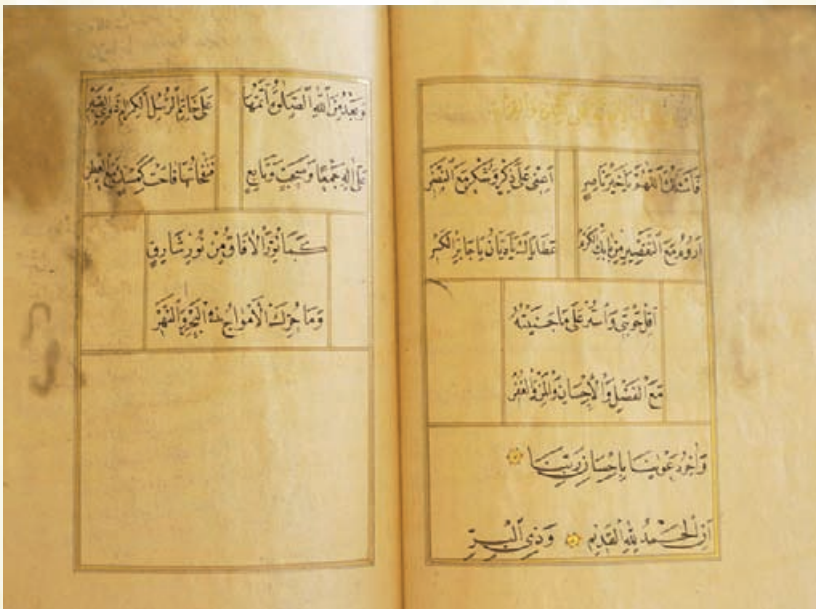 فاسئلك اللهم يا خير ناصر اعنى على ذكر وشكر مع
اروم مع التقصير من بابك الكرم عطاياك يا جابر الكسر
اقل حوبتى واستر على ما جنيته
مع الفضل والاحسان والمن والغفر
واخر دعوينا باحسان ربنا
ان الحمد لله القديم وذى البر
وبعد من الله الصلوة اتمها على خاتم الرسل الكرام ذوى
على اله جمعا وصحب وتابع نفحاتها فاحت كمسك مع العطر
كما نور الافاق من نور شارق
وما حرك الامواج البحر والنهر